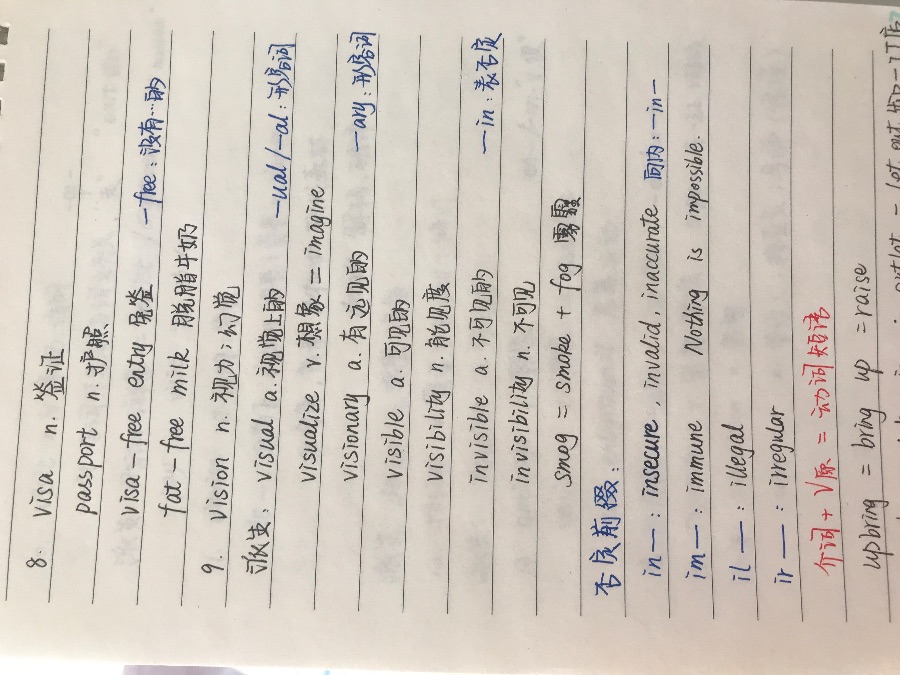 8. visa n. 签证
passport n. 护照
visa-free entry 免签 -free:没有…的
fat-free milk 脱脂牛奶
9. vision n. 视力;幻觉
派生: visual a. 视觉上的 -ual/-al:形容词
visualize v. 想象 = imagine
visionary a. 有远见的 -ary:形容词
visible a. 可见的
visibility n. 能见度
invisible a. 不可见的 -in:表否定
invisibility n. 不可见
smog = smoke + fog 雾霾
否定前缀:
in—: insecure, invalid, inaccurate 向内:-in-
im—: immune Nothing is impossible.
il—: illegal
ir—: irregular
介词 + V原 = 动词短语
upbring = bring up = raise